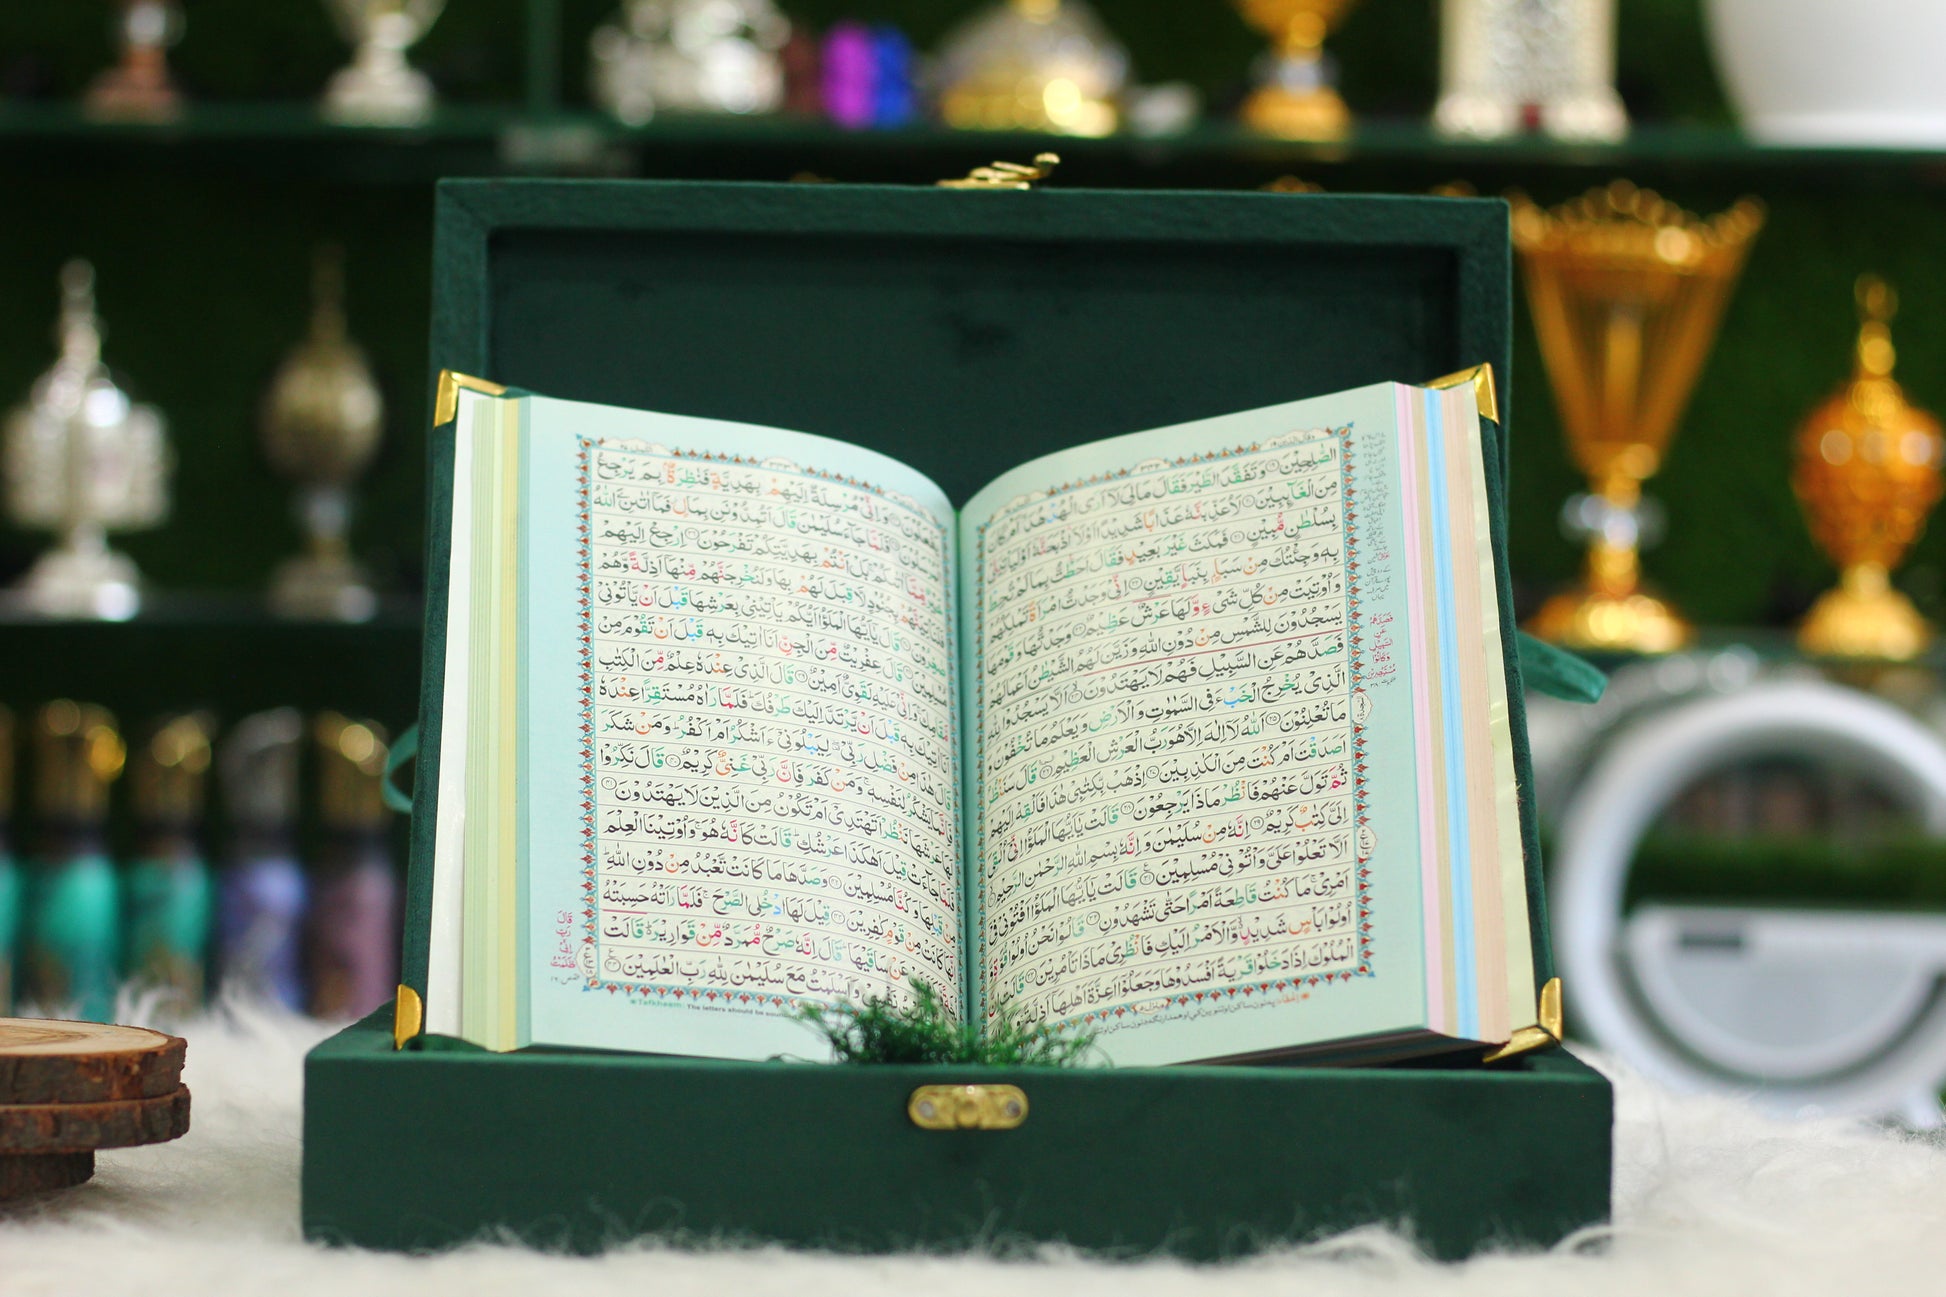 وقال الذين ١٩
٣٤٣
الصّٰلِحِيْنَ ۝۱۹ وَتَفَقَّدَ الطَّيْرَ فَقَالَ مَالِيَ لَاۤ اَرَى الْهُدْهُدَ ۖ اَمْ كَانَ
مِنَ الْغَآئِبِيْنَ ۝۲۰ لَاُعَذِّبَنَّهٗ عَذَابًا شَدِيْدًا اَوْ لَاَاذْبَحَنَّهٗۤ اَوْ لَيَاْتِيَنِّيْ
بِسُلْطٰنٍ مُّبِيْنٍ ۝۲۱ فَمَكَثَ غَيْرَ بَعِيْدٍ فَقَالَ اَحَطْتُّ بِمَا لَمْ تُحِطْ
بِهٖ وَجِئْتُكَ مِنْ سَبَاٍ بِنَبَاٍ يَّقِيْنٍ ۝۲۲ اِنِّيْ وَجَدْتُّ امْرَاَةً تَمْلِكُهُمْ
وَاُوْتِيَتْ مِنْ كُلِّ شَيْءٍ وَّلَهَا عَرْشٌ عَظِيْمٌ ۝۲۳ وَجَدْتُّهَا وَقَوْمَهَا
يَسْجُدُوْنَ لِلشَّمْسِ مِنْ دُوْنِ اللّٰهِ وَزَيَّنَ لَهُمُ الشَّيْطٰنُ اَعْمَالَهُمْ
فَصَدَّهُمْ عَنِ السَّبِيْلِ فَهُمْ لَا يَهْتَدُوْنَ ۝۲۴ اَلَّا يَسْجُدُوْا لِلّٰهِ
الَّذِيْ يُخْرِجُ الْخَبْءَ فِي السَّمٰوٰتِ وَالْاَرْضِ وَيَعْلَمُ مَا تُخْفُوْنَ وَ
مَا تُعْلِنُوْنَ ۝۲۵ اَللّٰهُ لَاۤ اِلٰهَ اِلَّا هُوَ رَبُّ الْعَرْشِ الْعَظِيْمِ ۝۲۶ قَالَ سَنَنْظُرُ
اَصَدَقْتَ اَمْ كُنْتَ مِنَ الْكٰذِبِيْنَ ۝۲۷ اِذْهَبْ بِّكِتٰبِيْ هٰذَا فَاَلْقِهْ اِلَيْهِمْ
ثُمَّ تَوَلَّ عَنْهُمْ فَانْظُرْ مَاذَا يَرْجِعُوْنَ ۝۲۸ قَالَتْ يٰۤاَيُّهَا الْمَلَؤُا اِنِّيْۤ اُلْقِيَ
اِلَيَّ كِتٰبٌ كَرِيْمٌ ۝۲۹ اِنَّهٗ مِنْ سُلَيْمٰنَ وَاِنَّهٗ بِسْمِ اللّٰهِ الرَّحْمٰنِ الرَّحِيْمِ ۝۳۰
اَلَّا تَعْلُوْا عَلَيَّ وَاْتُوْنِيْ مُسْلِمِيْنَ ۝۳۱ قَالَتْ يٰۤاَيُّهَا الْمَلَؤُا اَفْتُوْنِيْ فِيْۤ
اَمْرِيْ مَا كُنْتُ قَاطِعَةً اَمْرًا حَتّٰى تَشْهَدُوْنِ ۝۳۲ قَالُوْا نَحْنُ اُولُوْا قُوَّةٍ وَّ
اُولُوْا بَاْسٍ شَدِيْدٍ وَّالْاَمْرُ اِلَيْكِ فَانْظُرِيْ مَاذَا تَاْمُرِيْنَ ۝۳۳ قَالَتْ اِنَّ
الْمُلُوْكَ اِذَا دَخَلُوْا قَرْيَةً اَفْسَدُوْهَا وَجَعَلُوْۤا اَعِزَّةَ اَهْلِهَاۤ اَذِلَّةً
فَصَدَّهُمْ
عَنِ
السَّبِيْلِ
وَكَانُوْا
مُسْتَبْصِرِيْنَ
النمل ٢٧
يَفْعَلُوْنَ ۝۳۴ وَاِنِّيْ مُرْسِلَةٌ اِلَيْهِمْ بِهَدِيَّةٍ فَنٰظِرَةٌۢ بِمَ يَرْجِعُ
الْمُرْسَلُوْنَ ۝۳۵ فَلَمَّا جَآءَ سُلَيْمٰنَ قَالَ اَتُمِدُّوْنَنِ بِمَالٍ فَمَاۤ اٰتٰىنِۦَ اللّٰهُ
خَيْرٌ مِّمَّاۤ اٰتٰىكُمْ بَلْ اَنْتُمْ بِهَدِيَّتِكُمْ تَفْرَحُوْنَ ۝۳۶ اِرْجِعْ اِلَيْهِمْ
فَلَنَاْتِيَنَّهُمْ بِجُنُوْدٍ لَّا قِبَلَ لَهُمْ بِهَا وَلَنُخْرِجَنَّهُمْ مِّنْهَاۤ اَذِلَّةً وَّهُمْ
صٰغِرُوْنَ ۝۳۷ قَالَ يٰۤاَيُّهَا الْمَلَؤُا اَيُّكُمْ يَاْتِيْنِيْ بِعَرْشِهَا قَبْلَ اَنْ يَّاْتُوْنِيْ
مُسْلِمِيْنَ ۝۳۸ قَالَ عِفْرِيْتٌ مِّنَ الْجِنِّ اَنَا اٰتِيْكَ بِهٖ قَبْلَ اَنْ تَقُوْمَ مِنْ
مَّقَامِكَ وَاِنِّيْ عَلَيْهِ لَقَوِيٌّ اَمِيْنٌ ۝۳۹ قَالَ الَّذِيْ عِنْدَهٗ عِلْمٌ مِّنَ الْكِتٰبِ
اَنَا اٰتِيْكَ بِهٖ قَبْلَ اَنْ يَّرْتَدَّ اِلَيْكَ طَرْفُكَ فَلَمَّا رَاٰهُ مُسْتَقِرًّا عِنْدَهٗ
قَالَ هٰذَا مِنْ فَضْلِ رَبِّيْ لِيَبْلُوَنِيْۤ ءَاَشْكُرُ اَمْ اَكْفُرُ وَمَنْ شَكَرَ
فَاِنَّمَا يَشْكُرُ لِنَفْسِهٖ وَمَنْ كَفَرَ فَاِنَّ رَبِّيْ غَنِيٌّ كَرِيْمٌ ۝۴۰ قَالَ نَكِّرُوْا
لَهَا عَرْشَهَا نَنْظُرْ اَتَهْتَدِيْۤ اَمْ تَكُوْنُ مِنَ الَّذِيْنَ لَا يَهْتَدُوْنَ ۝۴۱
فَلَمَّا جَآءَتْ قِيْلَ اَهٰكَذَا عَرْشُكِ قَالَتْ كَاَنَّهٗ هُوَ وَاُوْتِيْنَا الْعِلْمَ
مِنْ قَبْلِهَا وَكُنَّا مُسْلِمِيْنَ ۝۴۲ وَصَدَّهَا مَا كَانَتْ تَّعْبُدُ مِنْ دُوْنِ اللّٰهِ
اِنَّهَا كَانَتْ مِنْ قَوْمٍ كٰفِرِيْنَ ۝۴۳ قِيْلَ لَهَا ادْخُلِي الصَّرْحَ فَلَمَّا رَاَتْهُ حَسِبَتْهُ
عَنْ سَاقَيْهَا قَالَ اِنَّهٗ صَرْحٌ مُّمَرَّدٌ مِّنْ قَوَارِيْرَ قَالَتْ
نَفْسِيْ وَاَسْلَمْتُ مَعَ سُلَيْمٰنَ لِلّٰهِ رَبِّ الْعٰلَمِيْنَ ۝۴۴
قَالَ
رَبِّ
اِنِّيْ
ظَلَمْتُ
Tafkheem: The letters should be